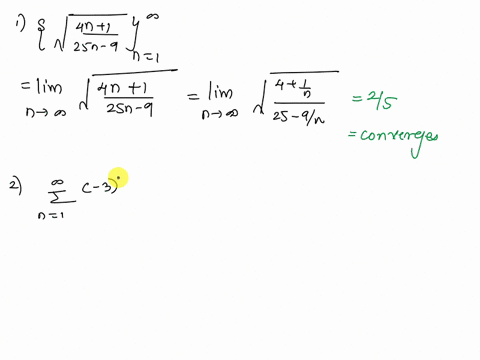 1) { √(4n+1 / 25n-9) }_{n=1}^{∞}
= lim_{n→∞} √(4n+1 / 25n-9) = lim_{n→∞} √(4+1/n / 25-9/n) = 2/5
= converges
2) ∑_{n=1}^{∞} (-3)